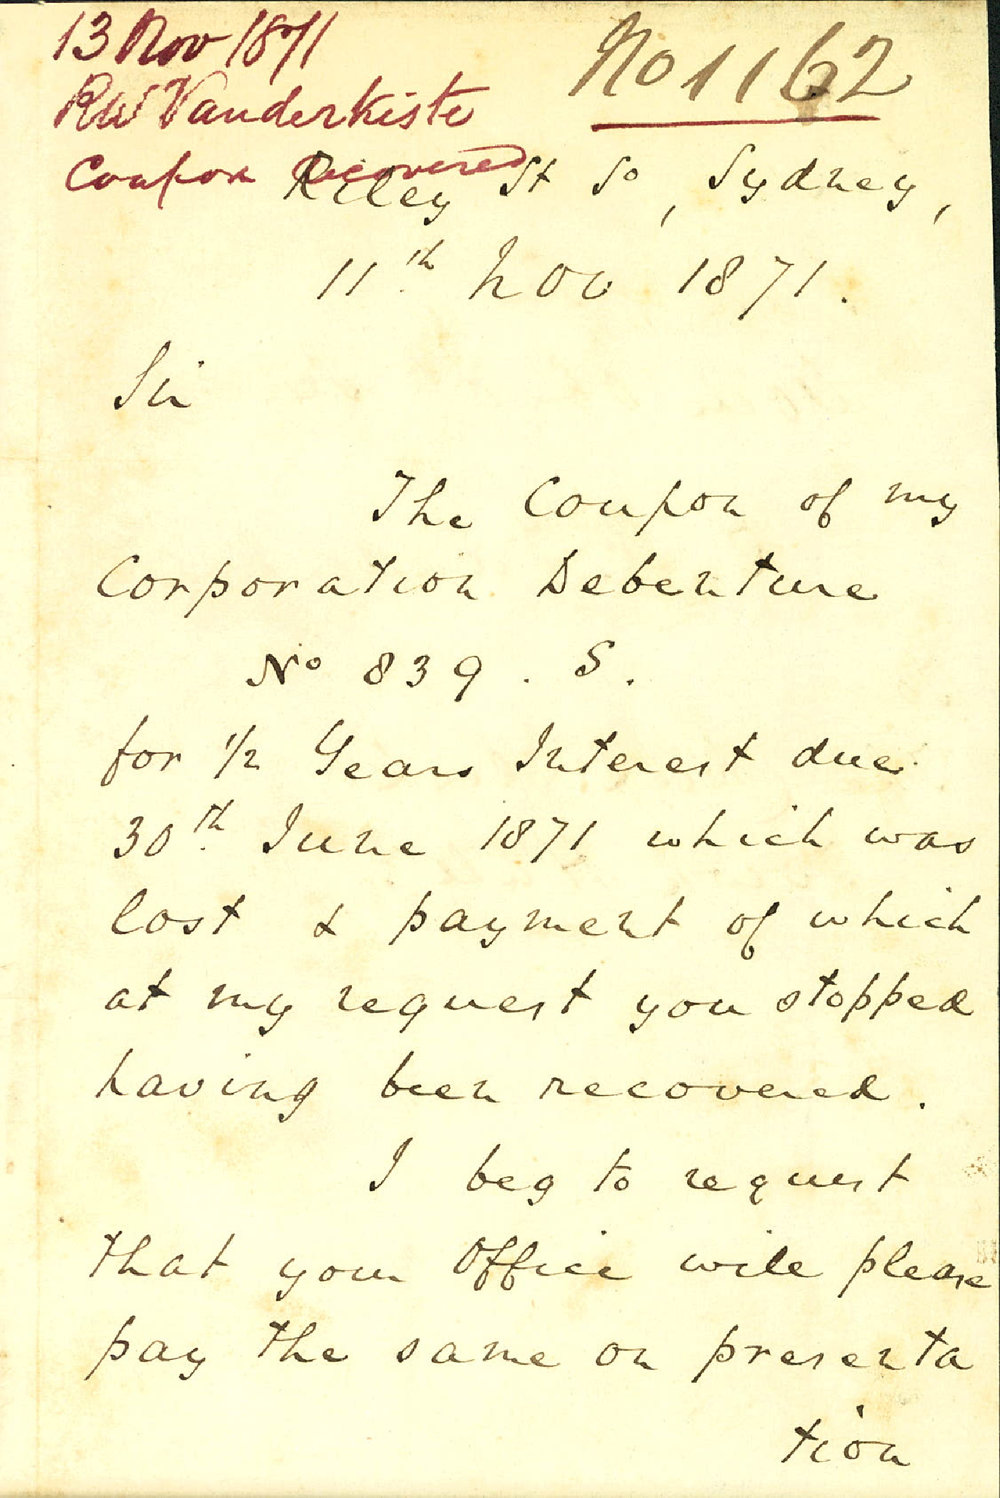 13 Nov 1871
RW Vanderkiste
Coupon recovered
No 1162
Riley St So, Sydney,
11th Nov 1871.
Sir
The Coupon of my
Corporation Debenture
No 839. S.
for 1/2 Years Interest due
30th June 1871 which was
lost & payment of which
at my request you stopped
having been recovered.
I beg to request
that your Office will please
pay the same on presenta
tion